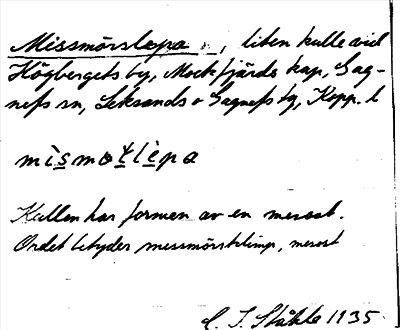 Missmörslepa, liten kulle vid
Högbergets by, Mockfjärds kap, Gag-
nefs sn, Leksands o Gagnefs tg, Kopp. l
mìsmotlèpa
Kullen har formen av en mesost.
Ordet betyder messmörsklimp, mesost
C. I. Ståhle 1935.